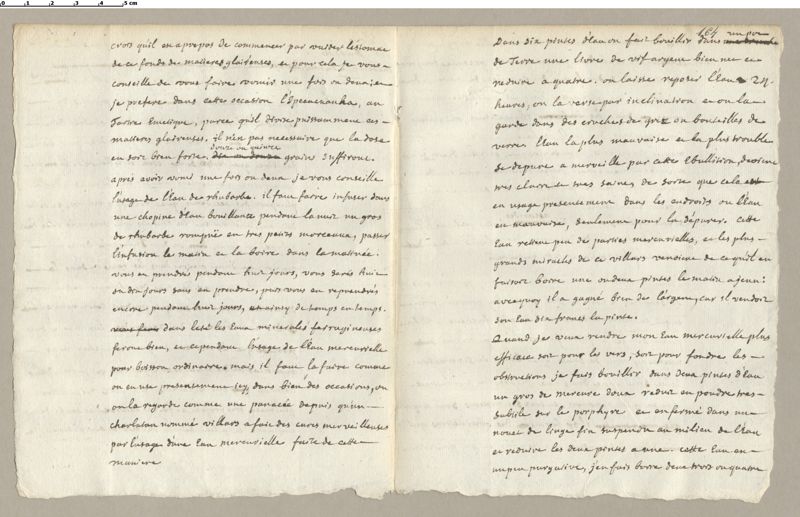 0 1 2 3 4 5 cm
crois quil en apropos de commencer par vuider l'estomac
de ce fonds de matieres glaireuses, et pour cela je vous
conseille de vous faire vomir une fois ou deux, et en
je prefere dans cette occasion l'Ipecacuanha, au
Tartre Emetique, parce quil divise puissamment ces
matieres glaireuses, il n'en pas necessaire que la dose
en soit bien forte, douze ou quinze grains suffiront.
apres avoir vomi une fois ou deux je vous conseille
l'usage de l'Eau de rhubarbe. il faut faire infuser dans
une chopine d'Eau bouillante pendant la nuit un gros
de rhubarbe rompuë en tres petits morceaux, passer
l'infusion le matin et la boire dans la matinée.
vous en prendres pendant huit jours, vous serés huit
ou dix jours sans en prendre, puis vous en reprendrés
encore pendant huit jours, et ainsy de temps en temps.
dans l'esté les Eaux minerales ferrugineuses
feront bien, et cependant l'usage de l'Eau mercurielle
pour boisson ordinaire, mais il faut la faire comme
on en use presentement icy, dans bien des occasions, ou
on la regarde comme une panacée depuis qu'un
charlatan nommé villars a fait des cures merveilleuses
par l'usage d'une Eau mercurielle faite de cette
maniere
164
Dans dix pintes d'Eau on fait bouillir dans un pot
de Terre une livre de vif-argent bien net et
reduire à quatre. on laisse reposer l'Eau 24
heures, on la verse par inclination et on la
garde dans des cruches de grez ou bouteilles de
verre. l'Eau la plus mauvaise et la plus trouble
se depure a merveille par cette Ebullition, devient
tres claire et tres saine, de sorte que cela
en usage presentement dans les endroits ou l'Eau
en mauvaise, seulement pour la dépurer. cette
Eau retient peu de parties mercurielles, et les plus
grands miracles de ce villars venoient de ce quil en
faisoit boire une ou deux pintes le matin a jeun:
avec quoy il a gagné bien de l'argent, car il vendoit
son Eau dix francs la pinte.
Quand je veux rendre mon Eau mercurielle plus
efficace soit pour les vers, soit pour fondre les
obstructions je fais bouillir dans deux pintes d'Eau
un gros de mercure doux reduit en poudre tres
subtile sur le porphyre et enfermé dans un
nouet de linge fin suspendu au milieu de l'Eau
et reduire les deux pintes a une. cette Eau en
un peu purgative, j'en fais boire deux trois ou quatre